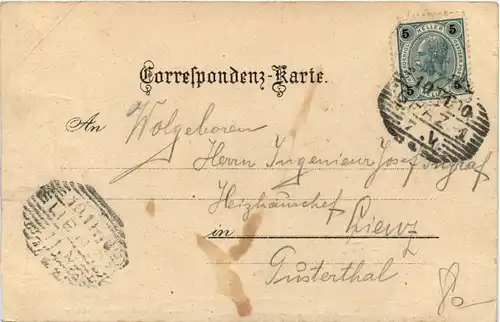 5 HELLER 5
5 5
Correspondenz-Karte.
An Wolgeboren
Herrn Ingenieur Josef Ingraf
Heizhauschef
in Lienz
Pusterthal